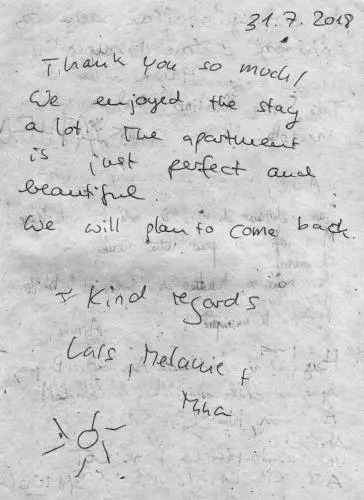 31.7.2018
Thank you so much!
We enjoyed the stay
a lot. The apartment
is just perfect and
beautiful.
We will plan to come back.
Kind regards
Lars, Melanie +